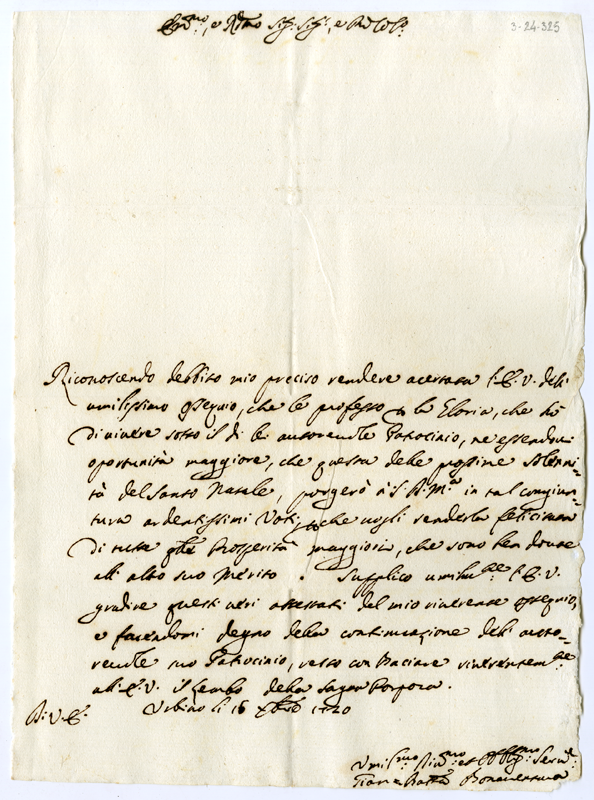 Em.mo, e R.mo Sig.r Sig.r, e Pad.
3-24-325
Riconoscendo debbito mio preciso rendere acertata l'E.V. dell'
umilissimo ossequio, che le professo p la Gloria, che hò
di vivere sotto il di lei autorevole Patrocinio, ne essendovi
oportunità maggiore, che questa delle prossime solenni=
tà del Santo Natale, porgerò à S.D.M.a in tal congiun=
tura ardentissimi Voti, che vogli renderla felicitata
di tutte Prosperità maggiori, che sono ben dovute
all'alto suo Merito. Supplico umilm.te l'E.V.
gradire questi veri attestati del mio riverente ossequio,
e facendomi degno della continuazione dell'auto=
revole suo Patrocinio, resto con baciare riverentem.te
all'E.V. il Lembo della Sagra Porpora.
D.V.E. Urbino li 16 Xbre 1720
Umil.mo Div.mo et Obblig.mo Serv.
Bonaventura